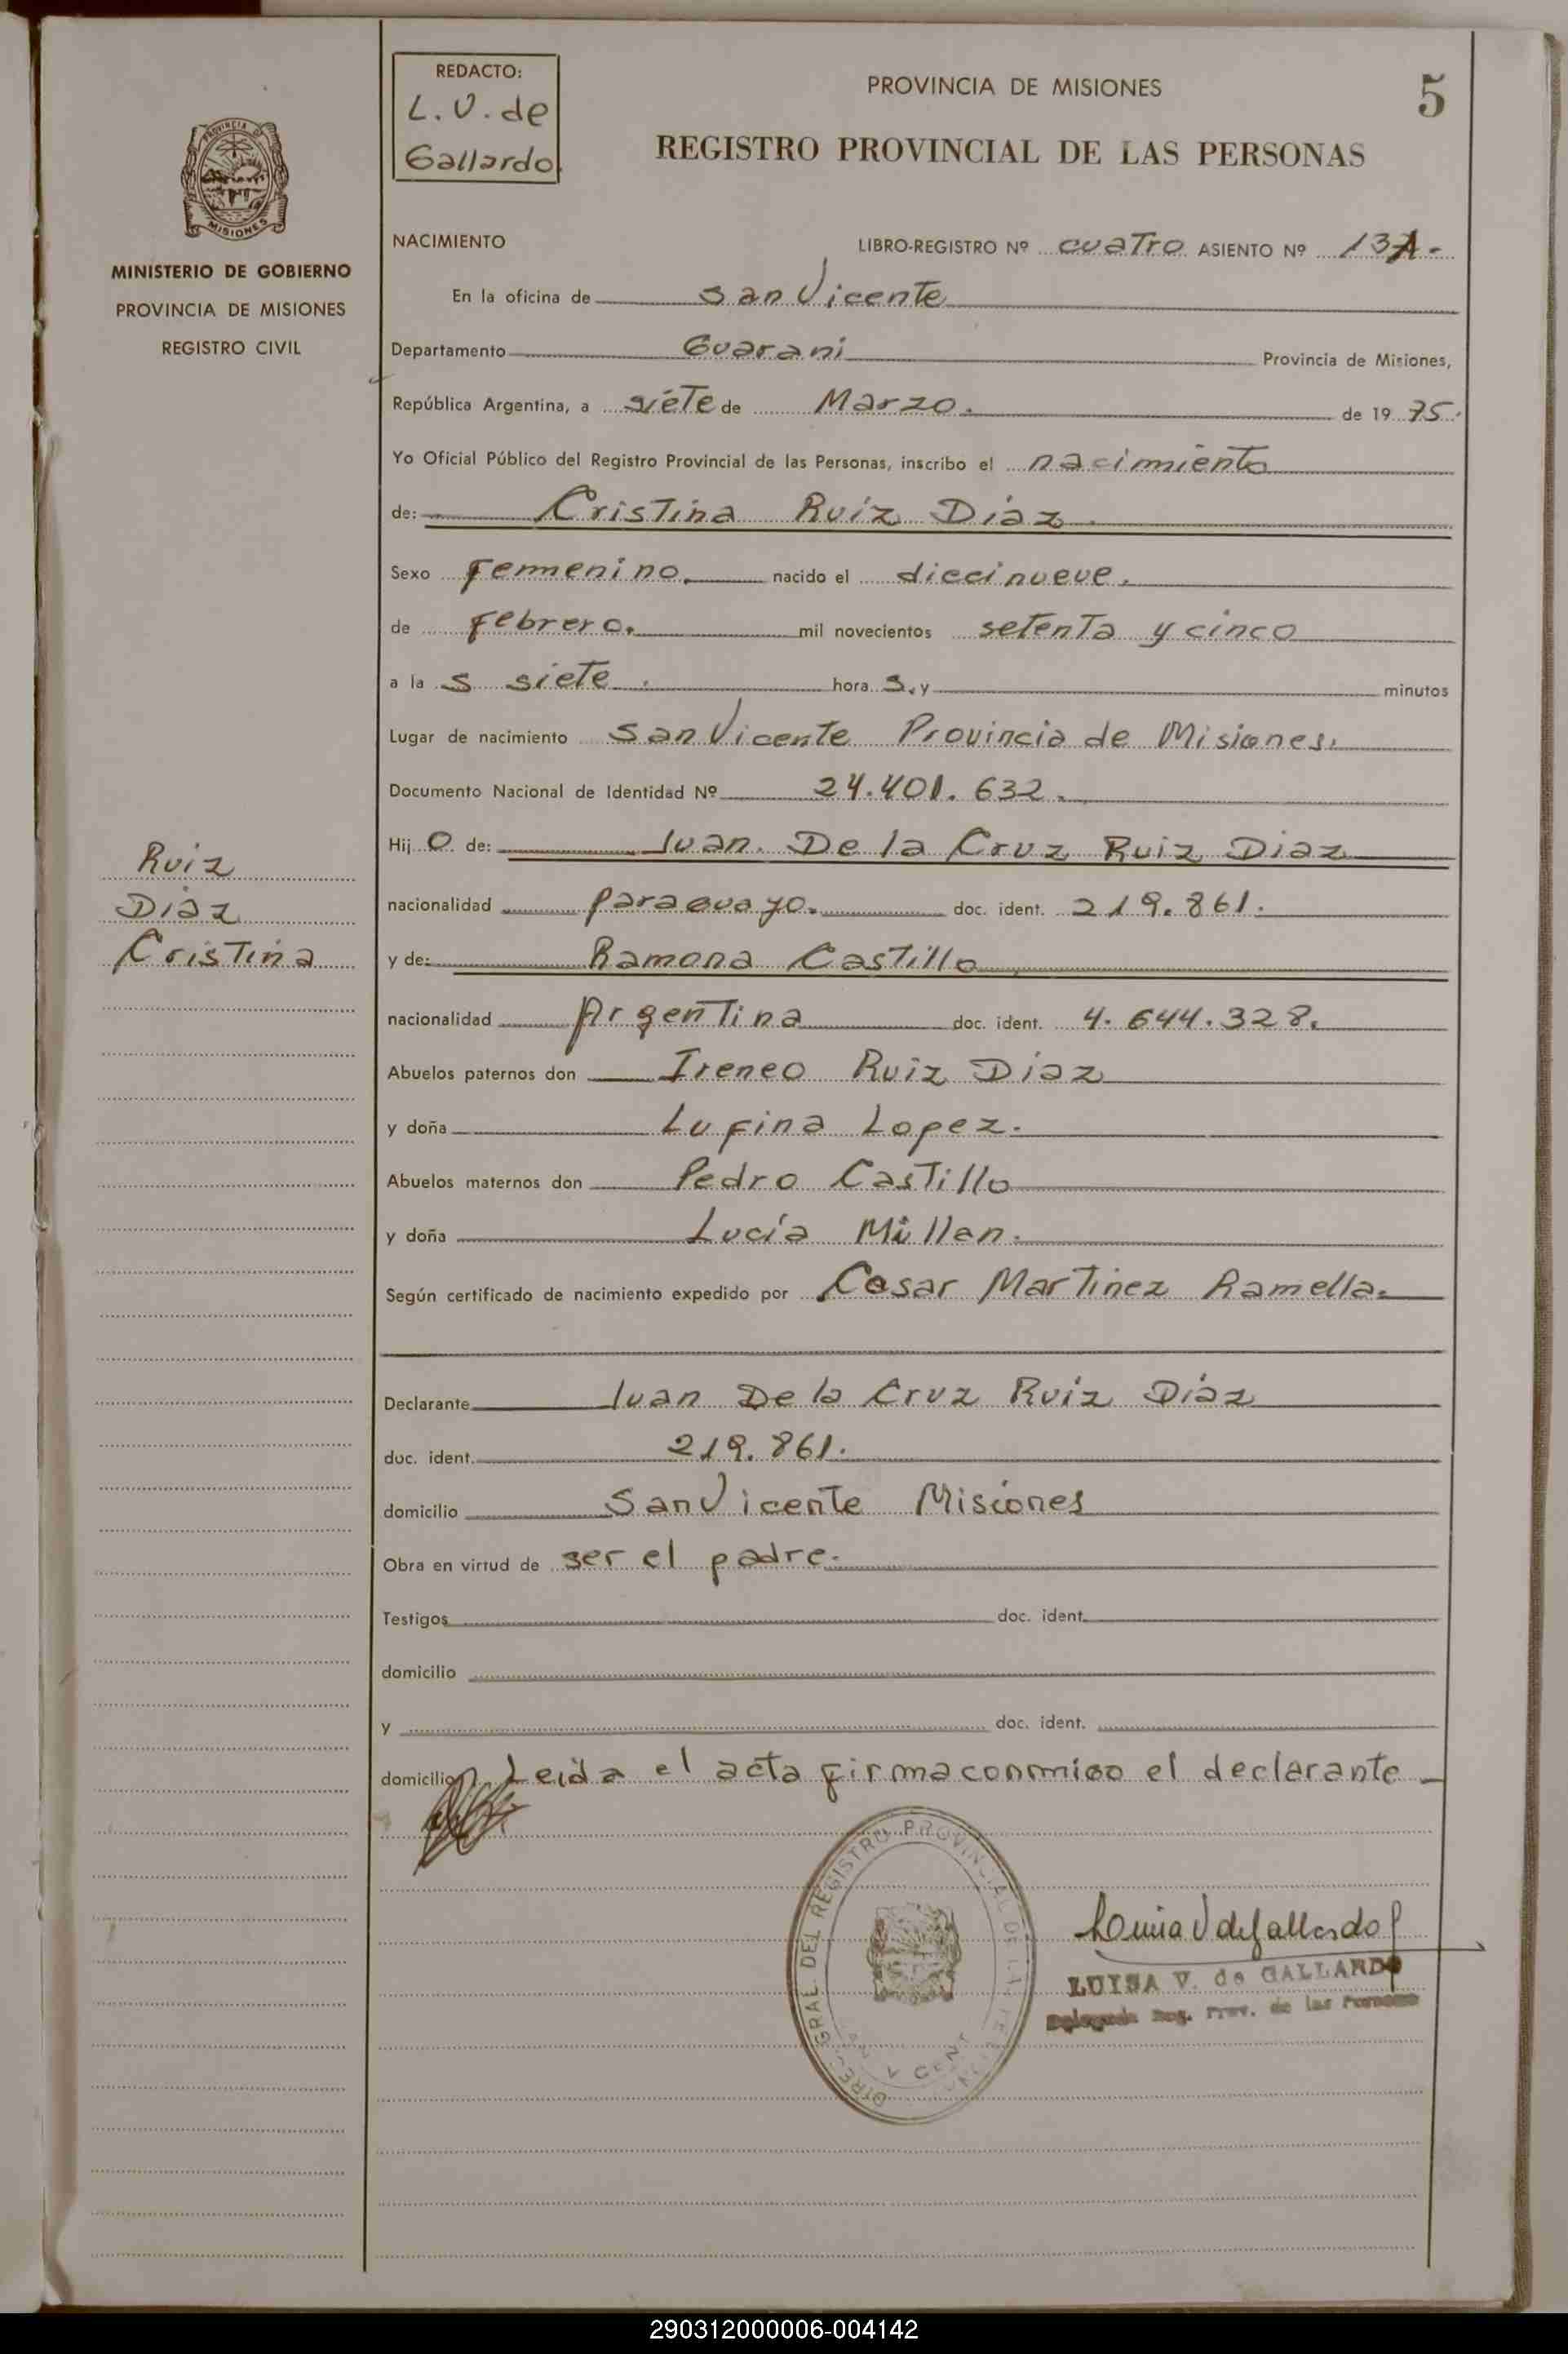 REDACTO:
L. V. de
Gallardo
PROVINCIA DE MISIONES
5
REGISTRO PROVINCIAL DE LAS PERSONAS
PROVINCIA DE
MISIONES
MINISTERIO DE GOBIERNO
PROVINCIA DE MISIONES
REGISTRO CIVIL
NACIMIENTO
LIBRO-REGISTRO Nº cuatro ASIENTO Nº
En la oficina de San Vicente
Departamento Guarani Provincia de Misiones,
República Argentina, a siete de Marzo. de 1975.
Yo Oficial Público del Registro Provincial de las Personas, inscribo el nacimiento
de: Cristina Ruiz Diaz.
Sexo femenino. nacido el diecinueve.
de febrero. mil novecientos setenta y cinco
a la s siete. hora s. y minutos
Lugar de nacimiento San Vicente Provincia de Misiones.
Documento Nacional de Identidad Nº 24.401.632.
Hij o de: Juan. De la Cruz Ruiz Diaz
nacionalidad paraguayo. doc. ident. 219.861.
y de: Ramona Castillo
nacionalidad Argentina doc. ident. 4.644.328.
Abuelos paternos don Ireneo Ruiz Diaz
y doña Lufina Lopez.
Abuelos maternos don Pedro Castillo
y doña Lucía Millan.
Según certificado de nacimiento expedido por Cesar Martinez Ramella.
Ruiz
Diaz
Cristina
Declarante Juan De la Cruz Ruiz Díaz
doc. ident. 219.861.
domicilio San Vicente Misiones
Obra en virtud de ser el padre.
Testigos doc. ident.
domicilio
y doc. ident.
domicilio Leida el acta firma conmigo el declarante
DIREC. GRAL. DEL REGISTRO PROVINCIAL DE LAS PERSONAS
Luisa V de Gallardo
LUISA V. de GALLARDO
Delegada Reg. Prov. de las Personas
290312000006-004142